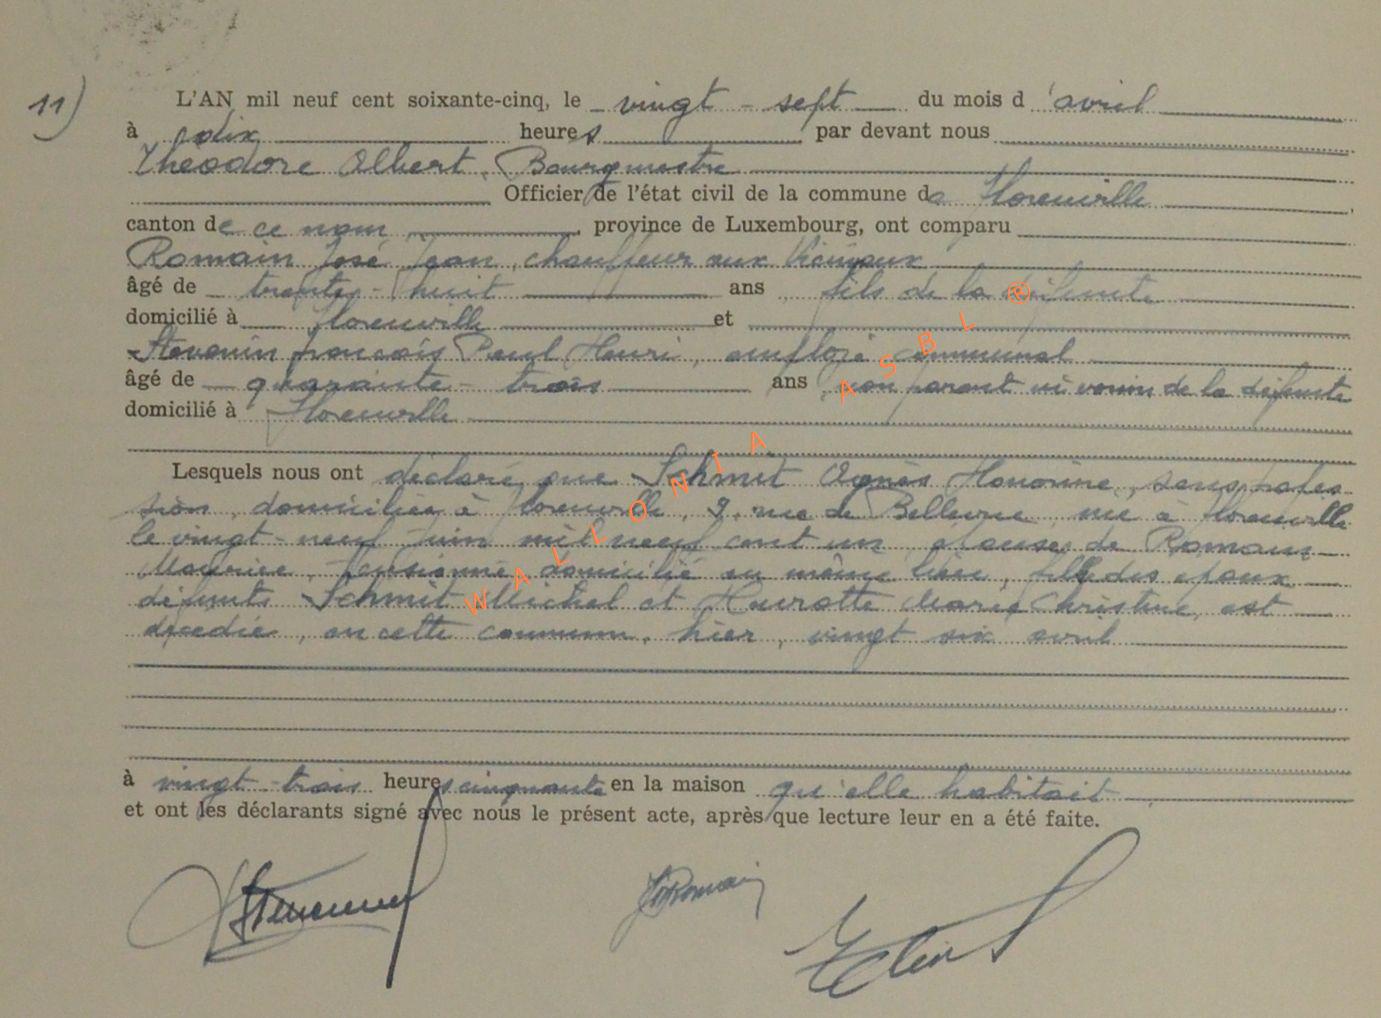 11) L'AN mil neuf cent soixante-cinq, le vingt-sept du mois d'avril
à dix heures par devant nous
Théodore Albert, Bourgmestre
Officier de l'état civil de la commune de Florenville
canton de ce nom, province de Luxembourg, ont comparu
Romain José Jean, chauffeur aux Vicinaux
âgé de trente-huit ans, fils de la défunte
domicilié à Florenville et
Stevenin françois Paul Henri, employé communal
âgé de quarante-trois ans, non parent ni voisin de la défunte
domicilié à Florenville
Lesquels nous ont déclaré que Schmit Agnès Honorine, sans profes-
sion, domiciliée à Florenville, 9, rue de Bellevue, née à Florenville
le vingt-neuf juin mil neuf cent un, épouse de Romain
Maurice, pensionné, domicilié au même lieu, fille des époux
défunts Schmit Michel et Marie Christine, est
décédée, en cette commune, hier, vingt six avril
à vingt-trois heures cinquante en la maison qu'elle habitait
et ont les déclarants signé avec nous le présent acte, après que lecture leur en a été faite.
JRomain
WALLONIA ASBL ®